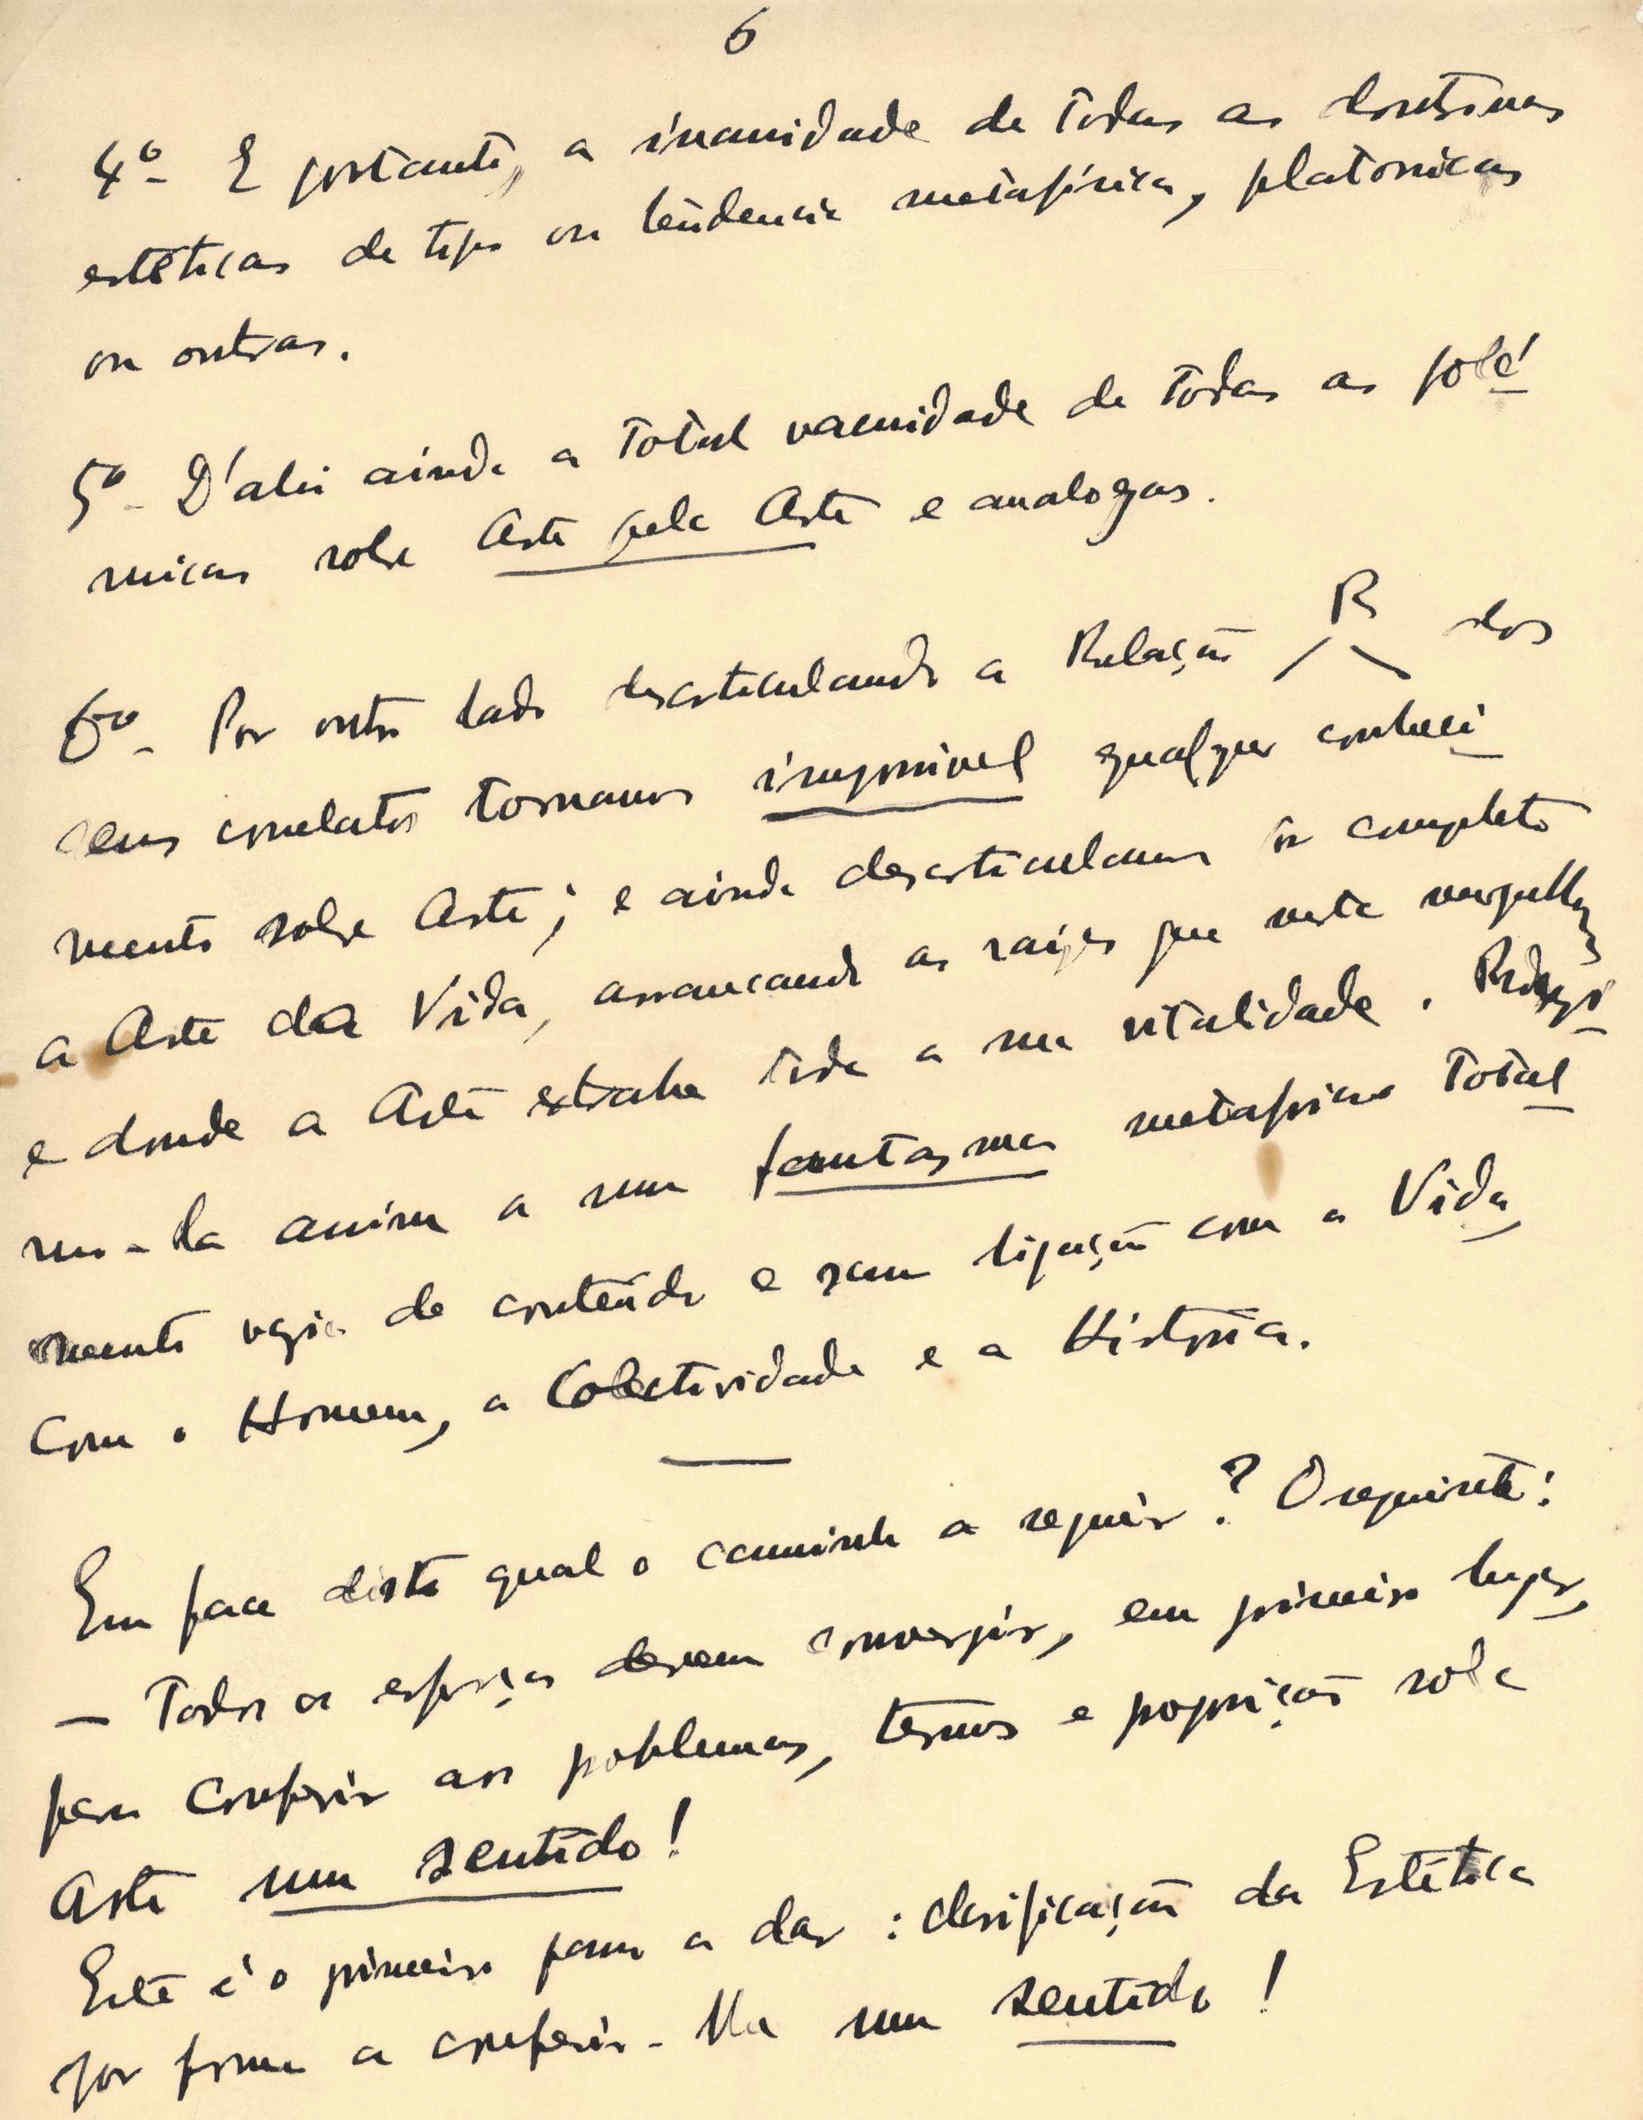 6
4º - E portanto, a inanidade de todas as doutrinas
estéticas de tipo ou tendencia metafísica, platonicas
ou outras.
5º - D'ahi ainda a total vacuidade de todas as polé
micas sobre Arte pela Arte e analogas.
6º - Por outro lado desarticulando a Relação R dos
seus correlatos tornamos impossivel qualquer conheci
mento sobre Arte; e ainda desarticulamos por completo
a Arte da Vida, arrancando as raizes que nesta mergulha
e donde a Arte extrahe toda a sua vitalidade. Reduzi
mo-la assim a um fantasma metafisico total
mente vazio de conteúdo e sem ligação com a Vida,
com o Homem, a Colectividade e a História.
Em face disto qual o caminho a seguir? O seguinte:
- Todos os esforços devem convergir, em primeiro lugar,
para conferir aos problemas, termos e proposições sobre
Arte um sentido!
Este é o primeiro passo a dar: clarificação da Estética
por forma a conferir-lhe um sentido!